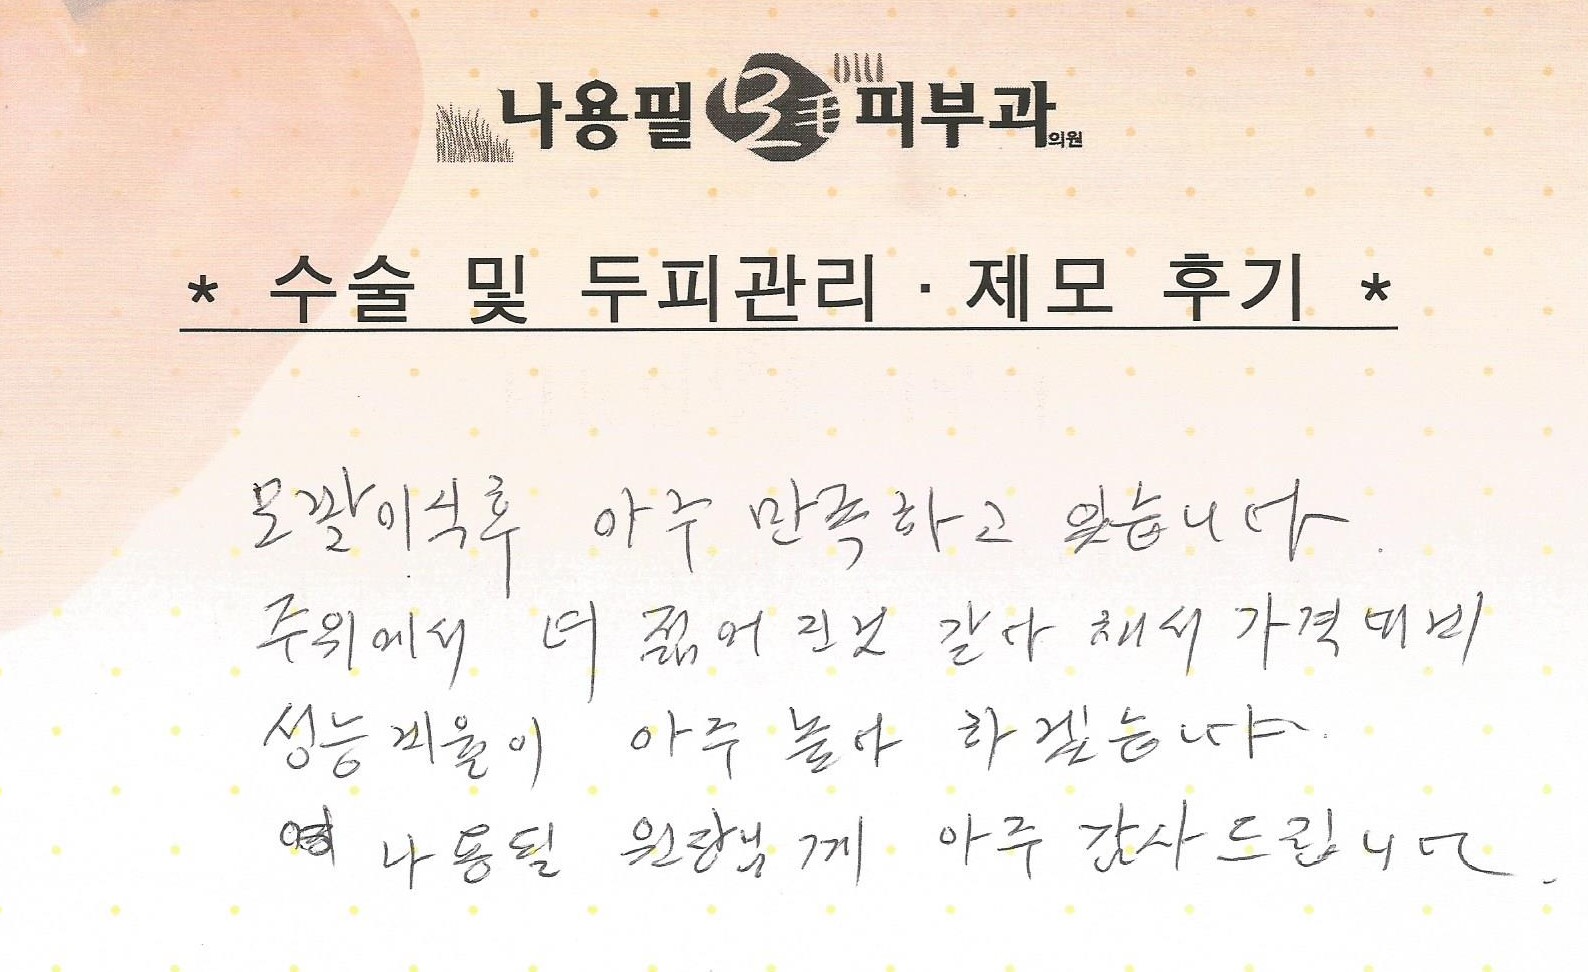 나용필 모 毛 피부과의원
* 수술 및 두피관리 · 제모 후기 *
모발이식후 아주 만족하고 있습니다.
주위에서 더 젊어진것 같다 해서 가격대비
성능비율이 아주 높다 하겠습니다.
나용필 원장님께 아주 감사드립니다.